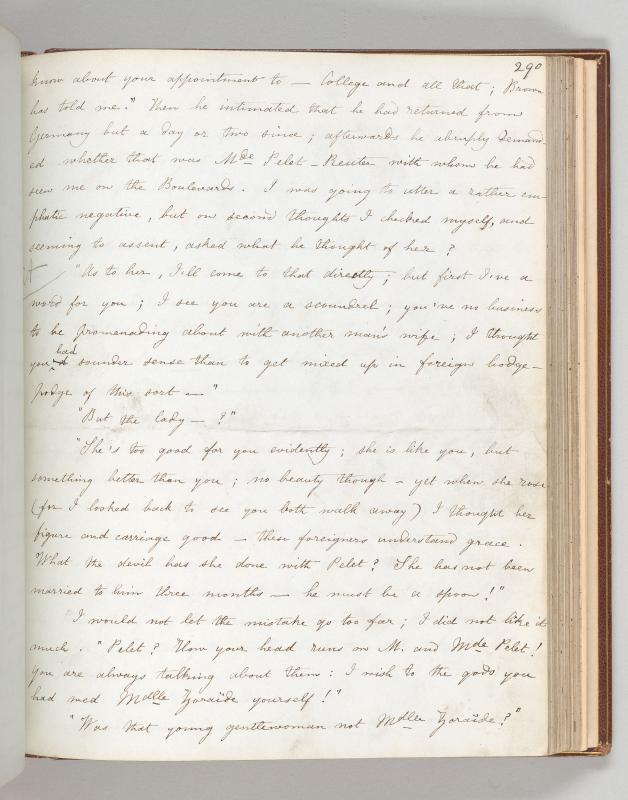 290
know about your appointment to — College and all that; Brown
has told me." Then he intimated that he had returned from
Germany but a day or two since; afterwards he abruptly demand-
ed whether that was Mde Pelet-Reuter with whom he had
seen me on the Boulevards. I was going to utter a rather em-
phatic negative, but on second thoughts I checked myself, and
seeming to assent, asked what he thought of her?
"As to her, I'll come to that directly; but first I've a
word for you; I see you are a scoundrel; you've no business
to be promenading about with another man's wife; I thought
you had sounder sense than to get mixed up in foreign hodge-
podge of this sort —"
"But the lady — ?"
"She's too good for you evidently; she is like you, but
something better than you; no beauty though — yet when she rose
(for I looked back to see you both walk away) I thought her
figure and carriage good — these foreigners understand grace.
What the devil has she done with Pelet? She has not been
married to him three months — he must be a spoon!"
"I would not let the mistake go too far; I did not like it
much. "Pelet? How your head runs on M. and Mde Pelet!
you are always talking about them: I wish to the gods you
had wed Mdlle Zoraïde yourself!"
"Was that young gentlewoman not Mdlle Zoraïde?"